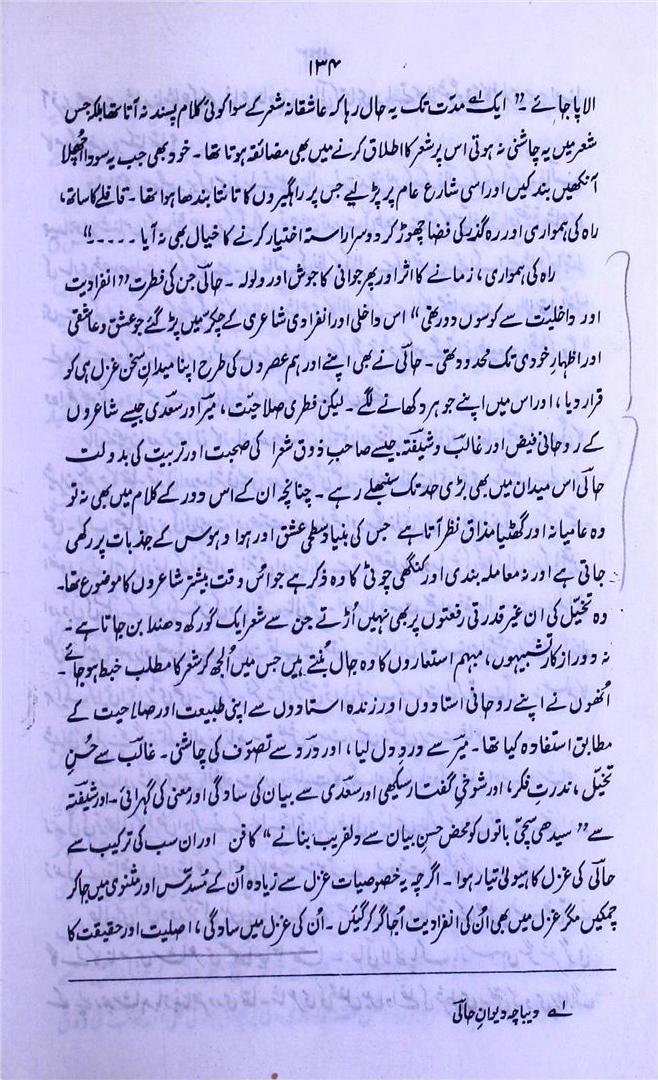 ۱۳۴
الاپا جائے ۔" ایک لہ مدّت تک یہ حال رہا کہ عاشقانہ شعر کے سوا کوئی کلام پسند نہ آتا تھا بلکہ جس
شعر میں یہ چاشنی نہ ہوتی اس پر شعر کا اطلاق کرنے میں بھی مضائقہ ہوتا تھا ۔ خود بھی جب یہ سودا اُچھلا
آنکھیں بند کیں اور اسی شارع عام پر پڑ لیے جس پر راہگیروں کا تانتا بندھا ہوا تھا ۔ قافلے کا ساتھ،
راہ کی ہمواری اور رہ گذر کی فضا چھوڑ کر دوسرا راستہ اختیار کرنے کا خیال بھی نہ آیا ۔۔۔۔۔"
راہ کی ہمواری ، زمانے کا اثر اور پھر جوانی کا جوش اور ولولہ ۔ حالیؔ جن کی فطرت " انفرادیت
اور داخلیت سے کوسوں دور تھی " اس داخلی اور انفرادی شاعری کے چکّر میں پڑ گئے جو عشق و عاشقی
اور اظہارِ خودی تک محدود تھی ۔ حالیؔ نے بھی اپنے اور ہم عصروں کی طرح اپنا میدانِ سخن غزل ہی کو
قرار دیا ، اور اس میں اپنے جوہر دکھانے لگے ۔ لیکن فطری صلاحیّت ، میرؔ اور سعدیؔ جیسے شاعروں
کے روحانی فیض اور غالبؔ و شیفتہؔ جیسے صاحبِ ذوق شعرا کی صحبت اور تربیت کی بدولت
حالیؔ اس میدان میں بھی بڑی حد تک سنبھلے رہے ۔ چنانچہ ان کے اس دور کے کلام میں بھی نہ تو
وہ عامیانہ اور گھٹیا مذاق نظر آتا ہے جس کی بنیاد سطحی عشق اور ہوا و ہوس کے جذبات پر رکھی
جاتی ہے اور نہ معاملہ بندی اور کنگھی چوٹی کا وہ ذکر ہے جو اُس وقت بیشتر شاعروں کا موضوع تھا۔
وہ تخیّل کی ان غیر قدرتی رفعتوں پر بھی نہیں اُڑتے جن سے شعر ایک گورکھ دھندا بن جاتا ہے ۔
نہ دور از کار تشبیہوں ، مبہم استعاروں کا وہ جال بُنتے ہیں جس میں اُلجھ کر شعر کا مطلب خبط ہو جائے ۔
اُنھوں نے اپنے روحانی استادوں اور زندہ استادوں سے اپنی طبیعت اور صلاحیت کے
مطابق استفادہ کیا تھا ۔ میرؔ سے دردِ دل لیا ، اور دردؔ سے تصوّف کی چاشنی ۔ غالبؔ سے حُسنِ
تخیّل ، ندرتِ فکر ، اور شوخیِ گفتار سیکھی اور سعدیؔ سے بیان کی سادگی اور معنی کی گہرائی ۔ اور شیفتہؔ
سے " سیدھی سچّی باتوں کو محض حسنِ بیان سے دلفریب بنانے " کا فن اور ان سب کی ترکیب سے
حالیؔ کی غزل کا ہیولیٰ تیار ہوا ۔ اگرچہ یہ خصوصیات غزل سے زیادہ اُن کے مُسدّس اور مثنوی میں جا کر
چمکیں مگر غزل میں بھی اُن کی انفرادیت اُجاگر کر گئیں ۔ اُن کی غزل میں سادگی ، اصلیت اور حقیقت کا
لہ دیباچہ دیوانِ حالیؔ